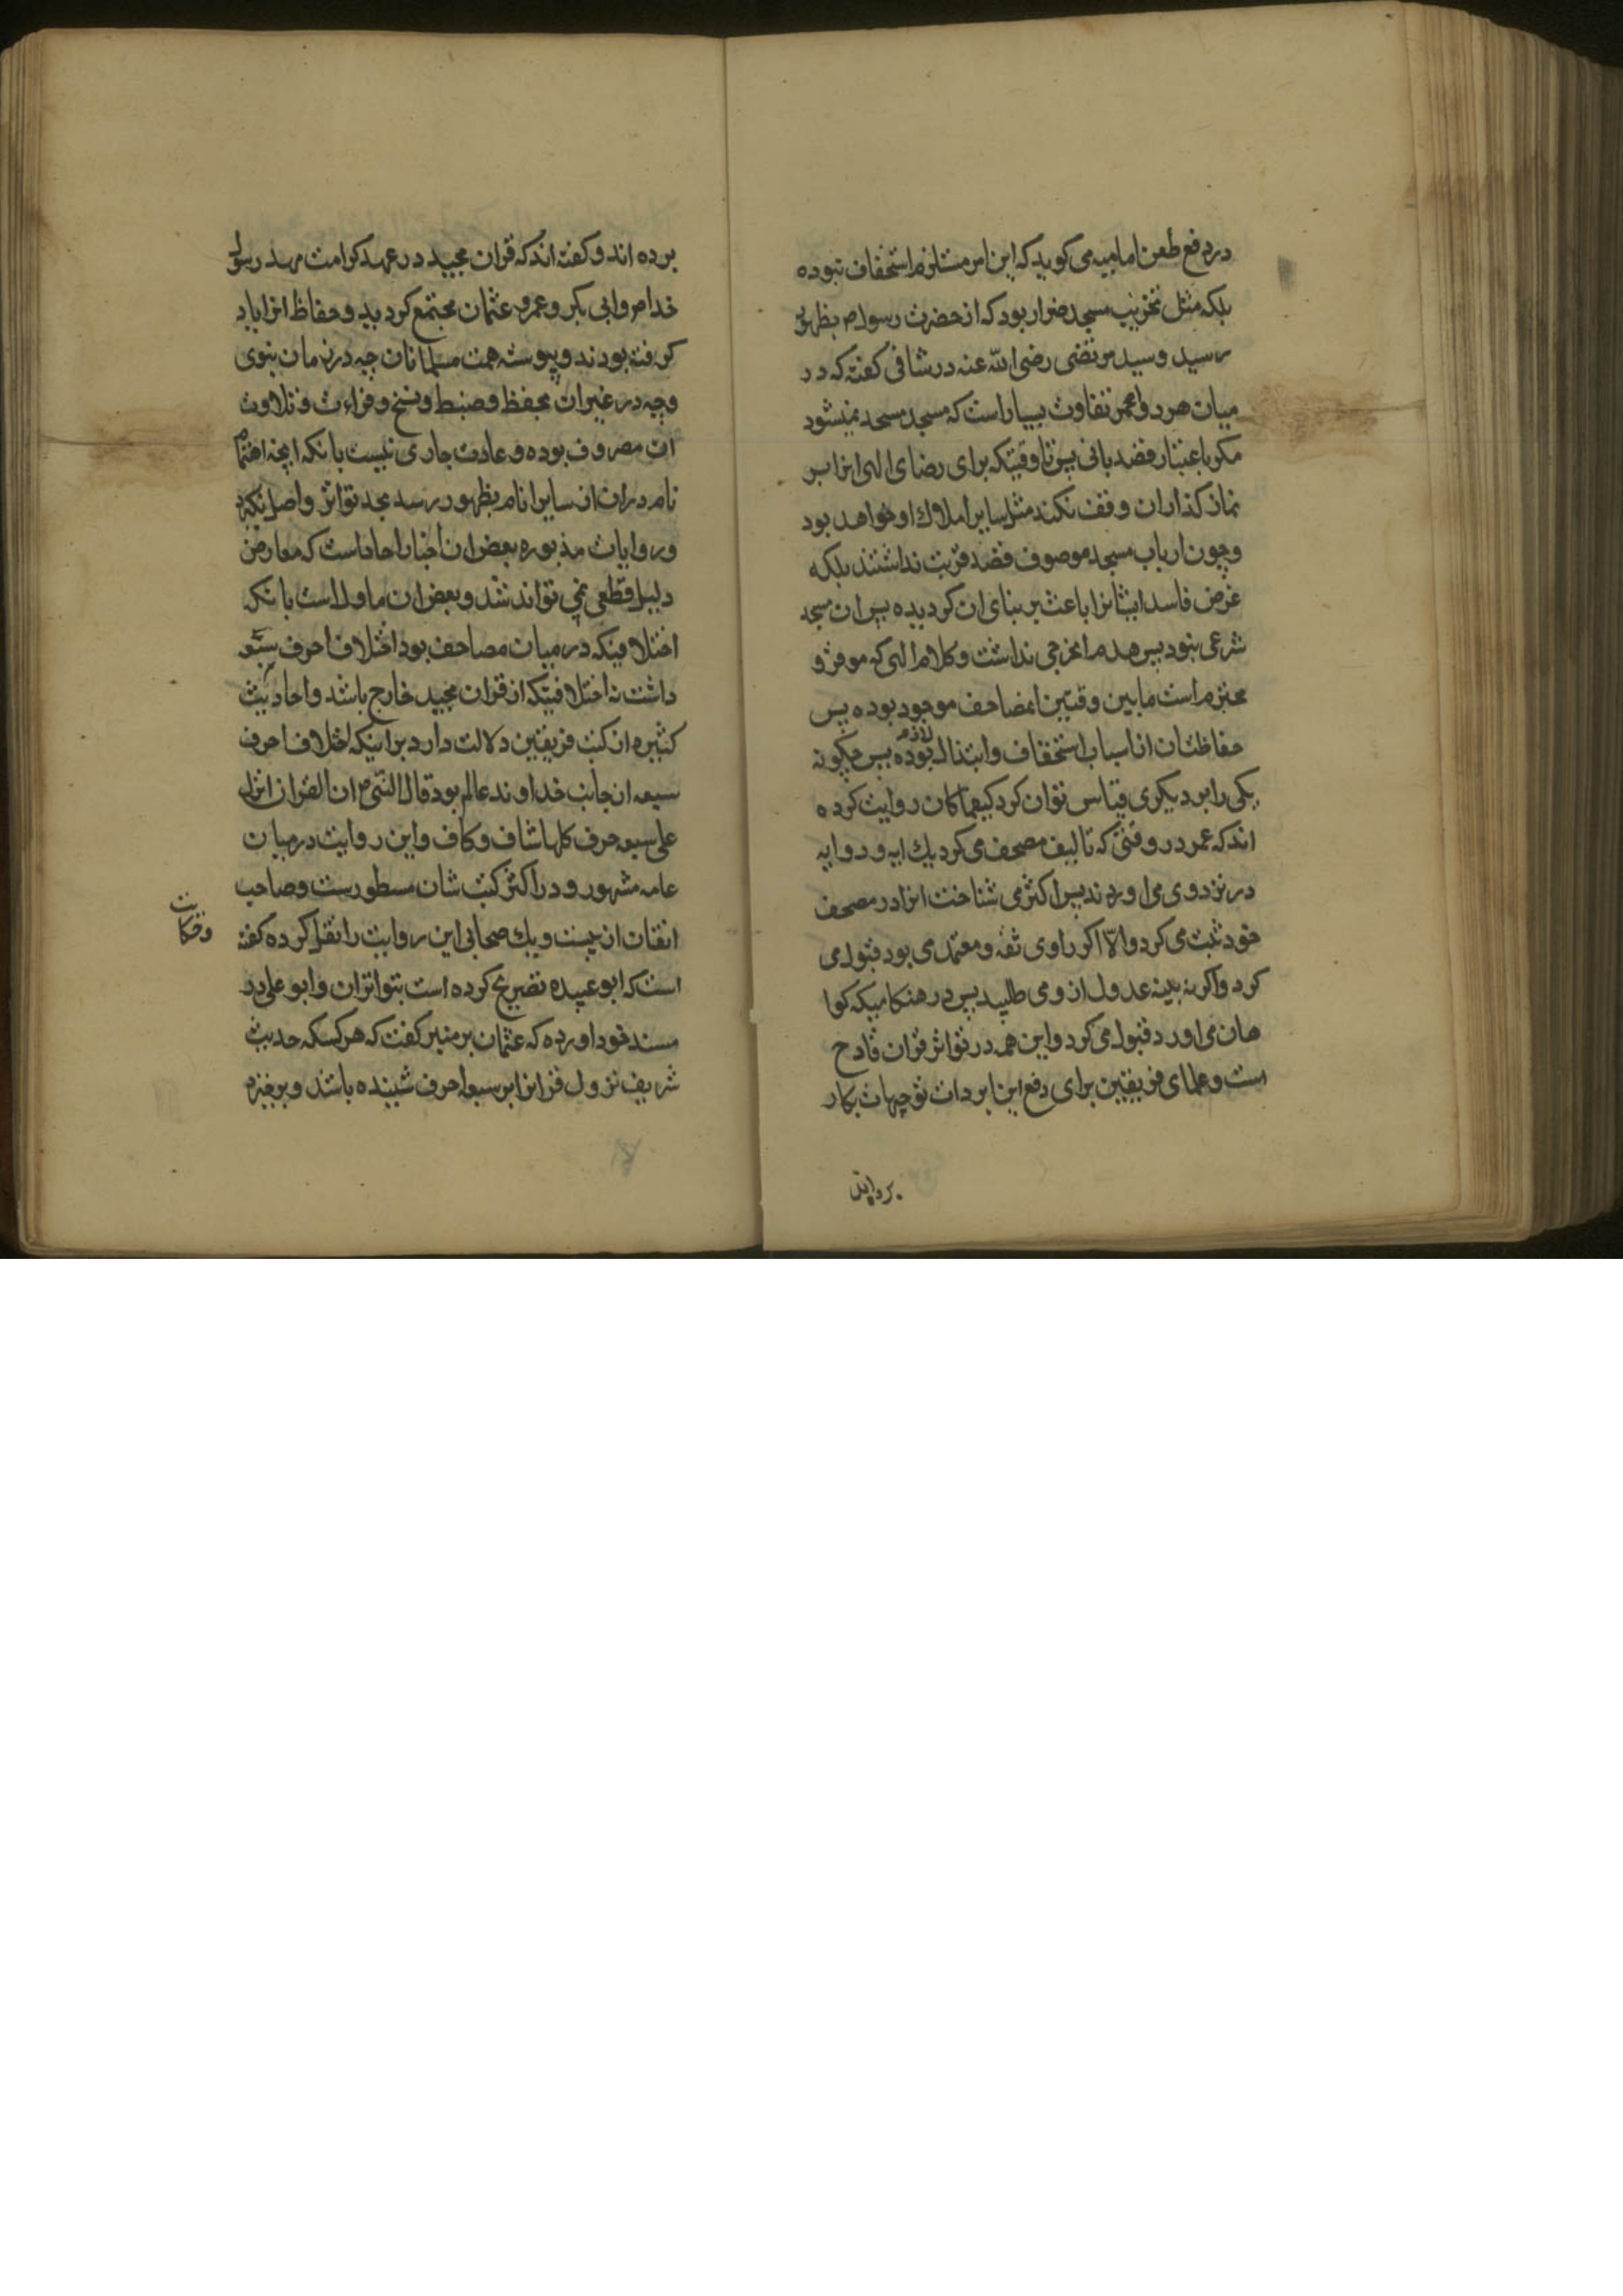 در دفع طعن امامیه می کوید که این امر مستلزم استخفاف نبوده
بلکه مثل تخریب مسجد ضرار بود که از حضرت رسول م بظهور
رسید و سید مرتضی رضی الله عنه در شافی کفته که در
میان هر دو امر تفاوت بسیار است که مسجد مسجد نمیشود
مکر باعتبار قصد بانی پس تا وقتیکه برای رضای الهی انرا بر
نماز کذاران وقف نکند مثل سایر املاک او خواهد بود
و چون ارباب مسجد موصوف قصد قربت نداشتند بلکه
غرض فاسد ایشانرا باعث بر بنای ان کردیده پس ان مسجد
شرعی نبود پس هدم انحرجی نداشت و کلام الهی که موقر و
محترم است مابین وقتین انمصاحف موجود بوده پس
حفاظتان از اسباب استخفاف و ابتذال لازم بوده پس چکونه
یکی را بر دیکری قیاس توان کرد کیفما کان روایت کرده
اند که عمر در وقتی که تالیف مصحف می کرد یك ایه و دو ایه
در نزد وی می اوردند پس اکثر می شناخت انرا در مصحف
خود ثبت می کرد والا اکر راوی ثقه و معتمد می بود قبول می
کرد واکر نه بینه عدول از و می طلبید پس در هنکامیکه کوا
هان می اورد قبول می کرد واین همه در تواتر قران قادح
است وعلمای فریقین برای دفع این ایرادات توجیهات بکار
برده اند
برده اند و کفته اند که قران مجید در عهد کرامت مهد رسول
خدا م وابی بکر وعمر و عثمان مجتمع کردید و حفاظ انرا یاد
کرفته بودند و پیوسته همت مسلمانان چه در زمان نبوی
وچه در غیر ان بحفظ وضبط و نسخ و قراءت و تلاوت
ان مصروف بوده و عادت جاری نیست بانکه انچه اهتمام
تام دران از سایر انام بظهور رسد بحد تواتر واصل نکردد
و روایات مذبوره بعض ان اخبار احاد است که معارض
دلیل قطعی نمی تواند شد و بعض ان ماول است بانکه
اختلافیکه در میان مصاحف بود اختلاف احرف سبعه
داشت نه اختلافیکه از قران مجید خارج باشد واحادیث
کثیره از کتب فریقین دلالت دارد بر اینکه اختلاف احرف
سبعه از جانب خداوند عالم بود قال النبی م ان القران انزل
علی سبعه حرف کلها شاف و کاف واین روایت در میان
عامه مشهور و در اکثر کتب شان مسطورست وصاحب
اتقان از بیست و یك صحابی این روایت را نقل کرده کفته
است که ابو عبیده تصریح کرده است بتواتر ان وابو علی در
مسند خود اورده که عثمان بر منبر کفت که هر کسکه حدیث
شریف نزول قرانرا بر سبعه احرف شنیده باشد و برخیزد